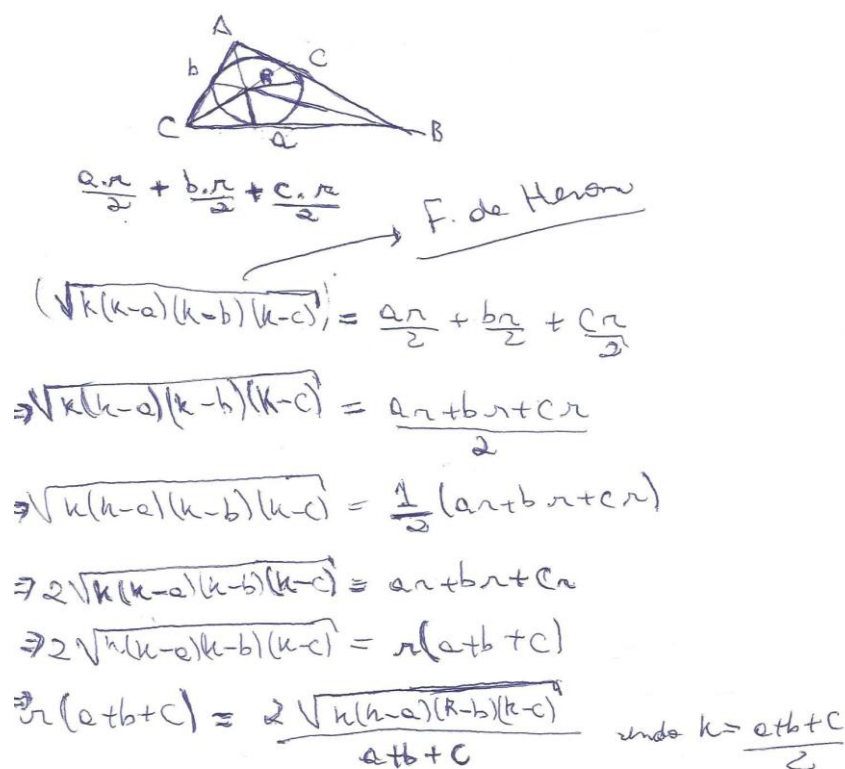 A
b
R
C
C
a
B
a.r/2 + b.r/2 + c.r/2
F. de Heron
(√k(k-a)(k-b)(k-c)) = ar/2 + br/2 + cr/2
⇒√k(k-a)(k-b)(k-c) = ar+br+cr/2
⇒√k(k-a)(k-b)(k-c) = 1/2 (ar+br+cr)
⇒2√k(k-a)(k-b)(k-c) = ar+br+cr
⇒2√k(k-a)(k-b)(k-c) = r(a+b+c)
⇒r(a+b+c) = 2√k(k-a)(k-b)(k-c)/a+b+c sendo k = a+b+c/2